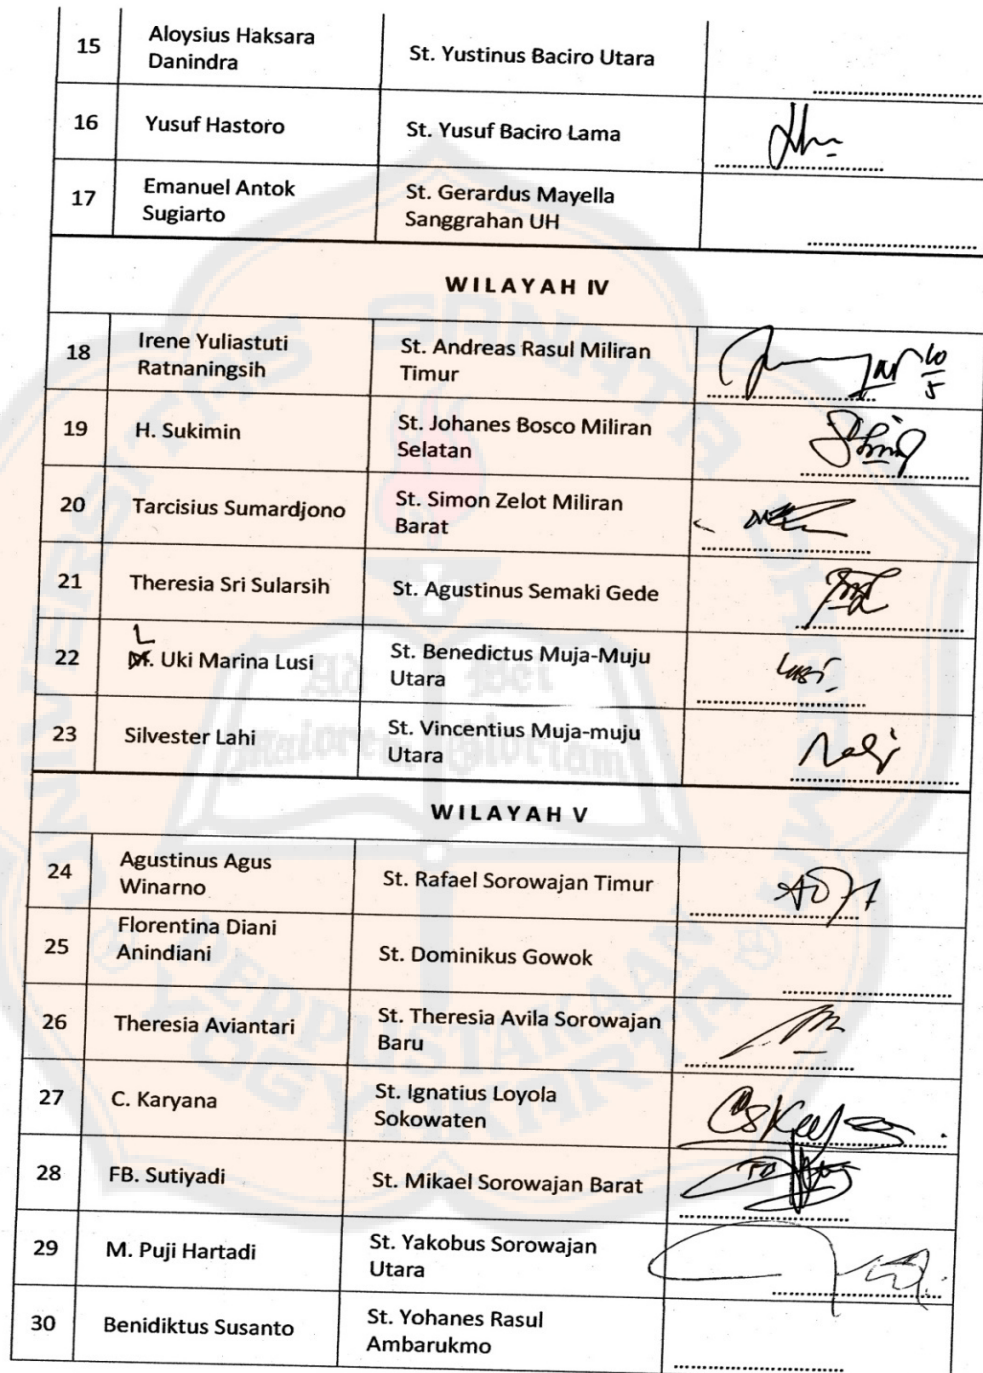 15
Aloysius Haksara
Danindra
St. Yustinus Baciro Utara
16
Yusuf Hastoro
St. Yusuf Baciro Lama
17
Emanuel Antok
Sugiarto
St. Gerardus Mayella
Sanggrahan UH
WILAYAH IV
18
Irene Yuliastuti
Ratnaningsih
St. Andreas Rasul Miliran
Timur
10
5
19
H. Sukimin
St. Johanes Bosco Miliran
Selatan
20
Tarcisius Sumardjono
St. Simon Zelot Miliran
Barat
21
Theresia Sri Sularsih
St. Agustinus Semaki Gede
22
L
Uki Marina Lusi
St. Benedictus Muja-Muju
Utara
Lusi
23
Silvester Lahi
St. Vincentius Muja-muju
Utara
WILAYAH V
24
Agustinus Agus
Winarno
St. Rafael Sorowajan Timur
25
Florentina Diani
Anindiani
St. Dominikus Gowok
26
Theresia Aviantari
St. Theresia Avila Sorowajan
Baru
27
C. Karyana
St. Ignatius Loyola
Sokowaten
28
FB. Sutiyadi
St. Mikael Sorowajan Barat
29
M. Puji Hartadi
St. Yakobus Sorowajan
Utara
30
Benidiktus Susanto
St. Yohanes Rasul
Ambarukmo
UNIVERSITAS SANATA DHARMA
Ad Dei
Maiorem Gloriam
PERPUSTAKAAN
YOGYAKARTA